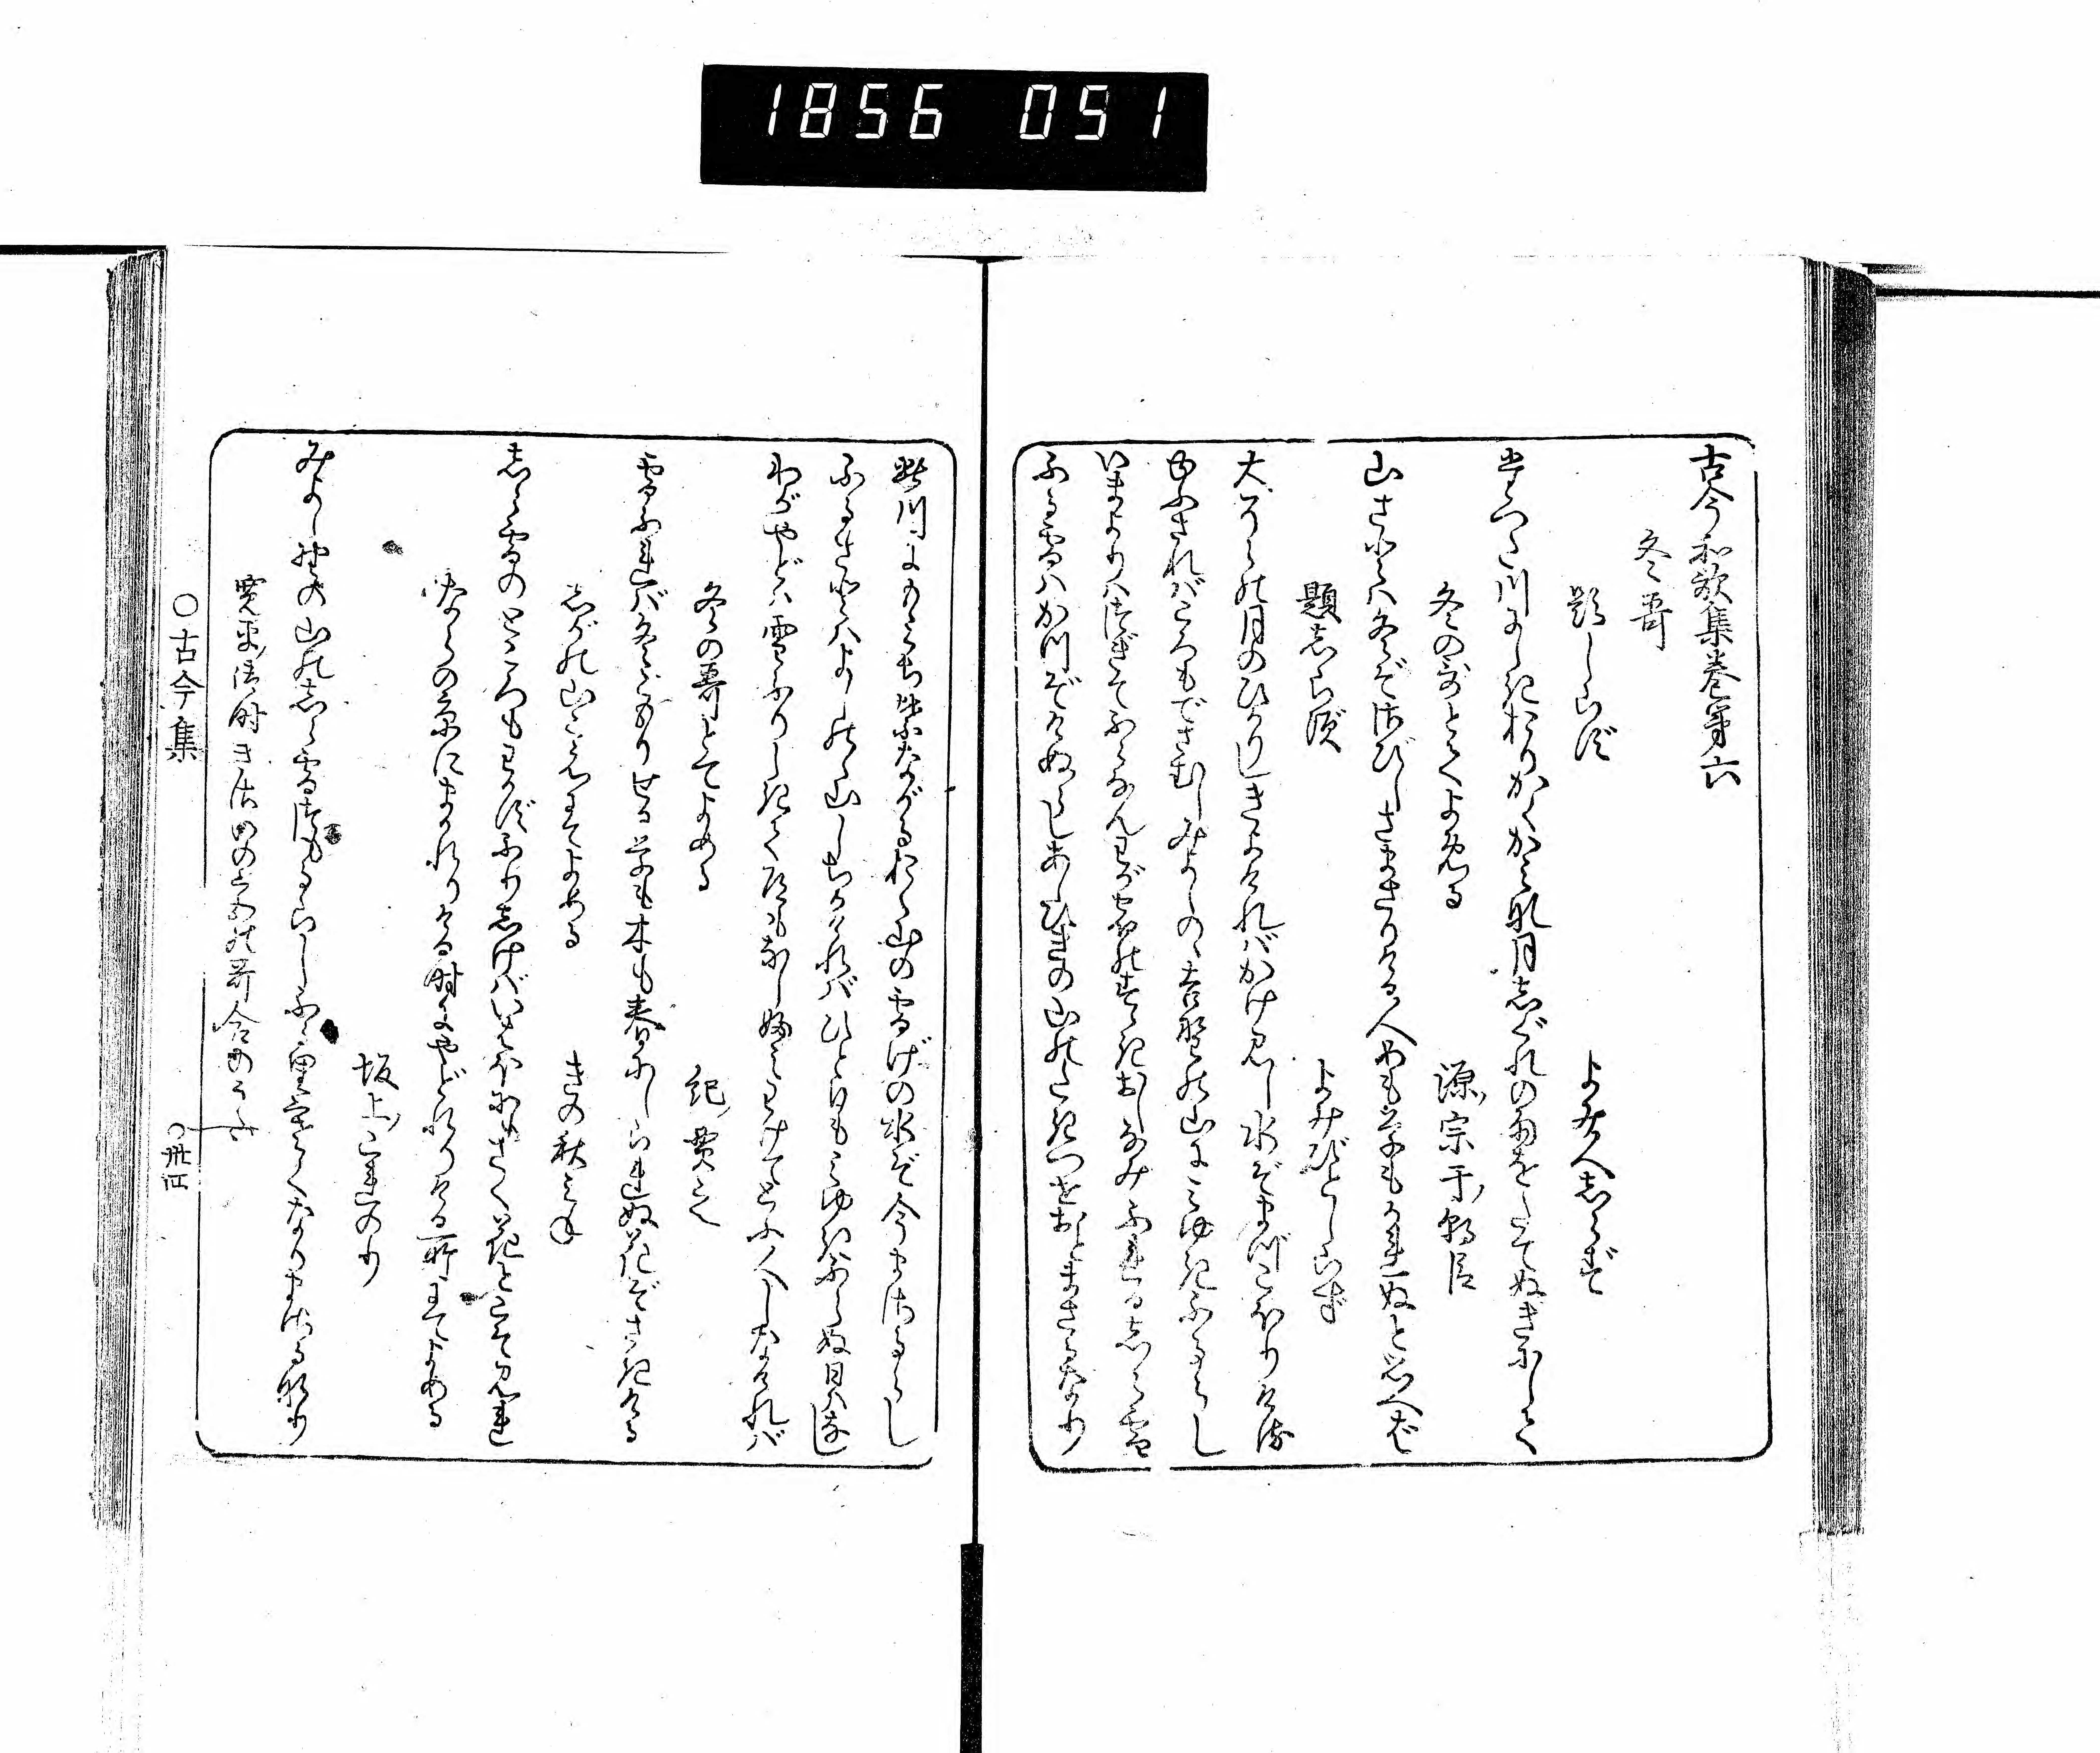 1856 051
古今和歌集巻第六
冬哥
題しらず
よみ人志らず
たつた川にしきおりかく神な月志ぐれの雨をたてぬきにして
冬の哥とてよめる
源宗于朝臣
山さとハ冬ぞさびしさまさりける人めも草もかれぬと思へば
題志らず
よみびとしらず
大ぞらの月のひかりしきよければかけ見し水ぞまづこほりける
ゆふされバころもでさむしみよしのゝ吉野の山にみゆきふるらし
いまよりハつぎてふらなんわが宿のすゝきおしなみふれる志ら雪
ふる雪ハかつぞけぬらしあしひきの山のたきつせおとまさるなり
此川にもみぢ葉ながるおく山の雪げの水ぞ今まさるらし
ふるさとハよしの山しちかけれバひと日もみゆきふらぬ日ハなし
わがやどハ雪ふりしきて道もなしふみわけてとふ人しなけれバ
冬の哥とてよめる
紀貫之
雪ふれバ冬ごもりせる草も木も春にしられぬ花ぞさきける
志がの山ごえにてよめる
きの秋みね
志ら雪のところもわかずふりしけバいはほにもさく花とこそ見れ
ならの京にまかれりける時にやどれりける所にてよめる
坂上これのり
みよし野の山の志ら雪つもるらしふる里さむくなりまさるなり
寛平御時きさいの宮の哥合のうた
○古今集
○卅四